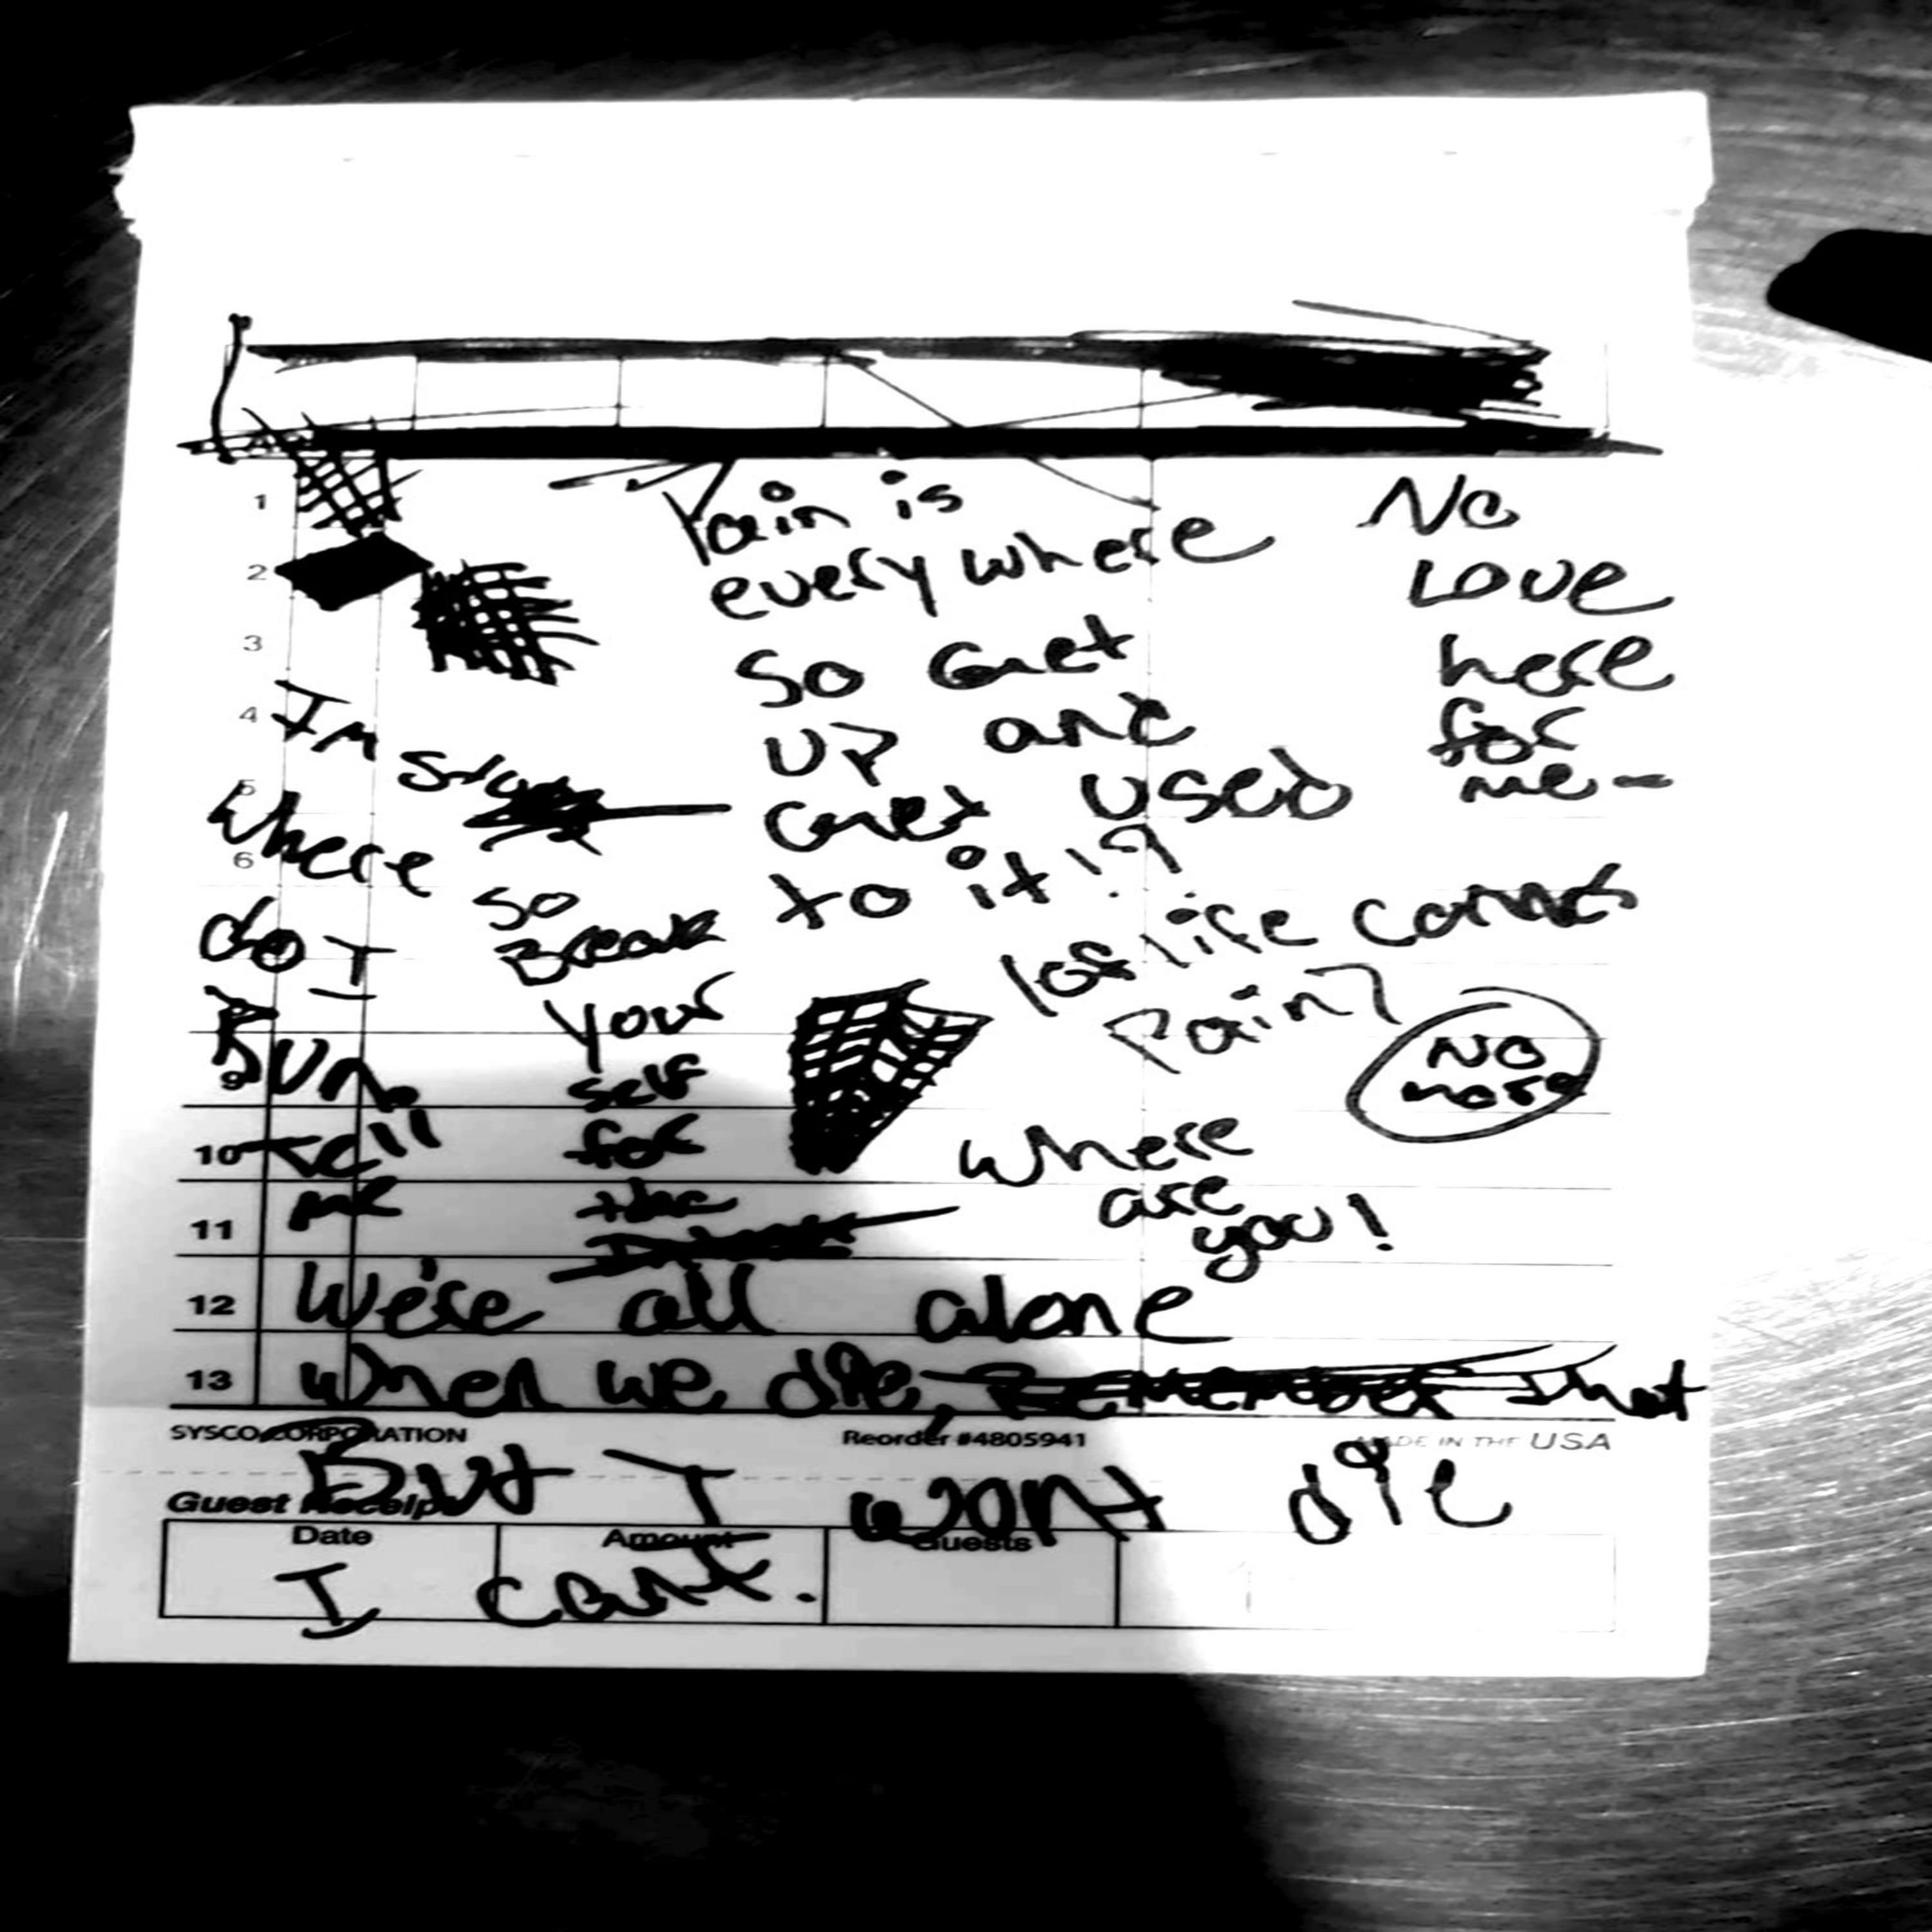 1
Pain is
No
2
everywhere
Love
3
So Get
here
4
Im
up and
for
5
Get used
me-
Where
6
to it!?
so
do I
Break
life
Pain?
your
No
more
Run
9
self
10
Tell
for
Where
me
the
are
11
you!
12
We're all alone
13
when we die, Remember that
SYSCO CORPORATION
Reorder #4805941
MADE IN THE USA
But I wont die
Guest Receipt
Date
Amount
Guests
I cant.
1